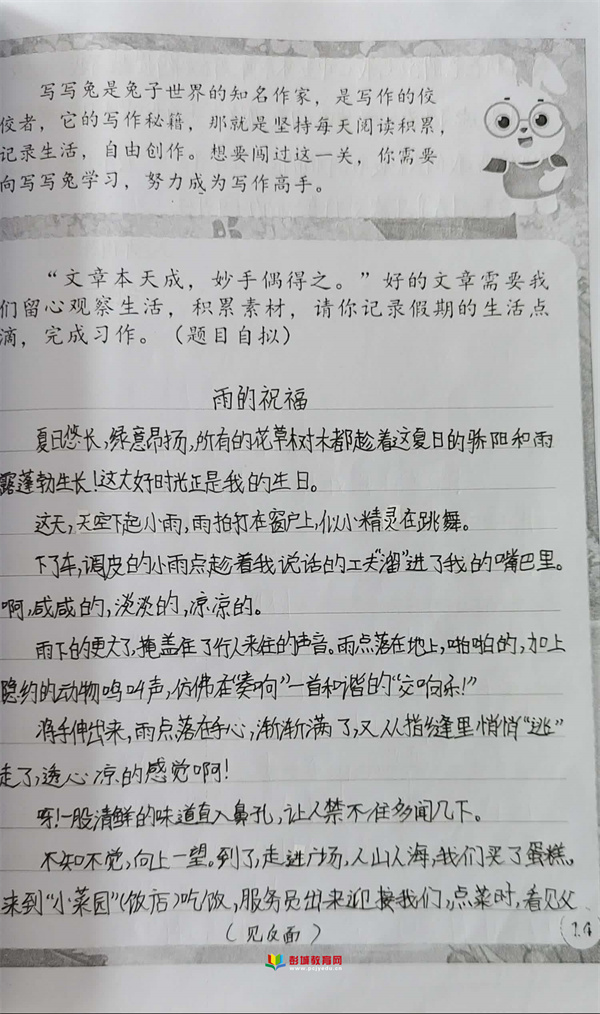 写写兔是兔子世界的知名作家，是写作的佼
佼者，它的写作秘籍，那就是坚持每天阅读积累，
记录生活，自由创作。想要闯过这一关，你需要
向写写兔学习，努力成为写作高手。
“文章本天成，妙手偶得之。”好的文章需要我
们留心观察生活，积累素材，请你记录假期的生活点
滴，完成习作。（题目自拟）
雨的祝福
夏日悠长，绿意昂扬，所有的花草树木都趁着这夏日的骄阳和雨
露蓬勃生长！这大好时光正是我的生日。
这天，天空下起小雨，雨拍打在窗户上，似小精灵在跳舞。
下了车，调皮的小雨点趁着我说话的工夫“溜”进了我的嘴巴里。
啊，咸咸的，淡淡的，凉凉的。
雨下的更大了，掩盖住了行人来往的声音。雨点落在地上，啪啪的，加上
隐约的动物鸣叫声，仿佛在“奏响”一首和谐的“交响乐！”
将手伸出来，雨点落在手心，渐渐满了，又从指缝里悄悄“逃”
走了，透心凉的感觉啊！
呀！一股清鲜的味道直入鼻孔，让人禁不住多闻几下。
不知不觉，向上一望。到了，走进广场，人山人海，我们买了蛋糕。
来到“小菜园”（饭店）吃饭，服务员出来迎接我们，点菜时，看见父
（见反面）
彭城教育网
www.pcjyedu.cn